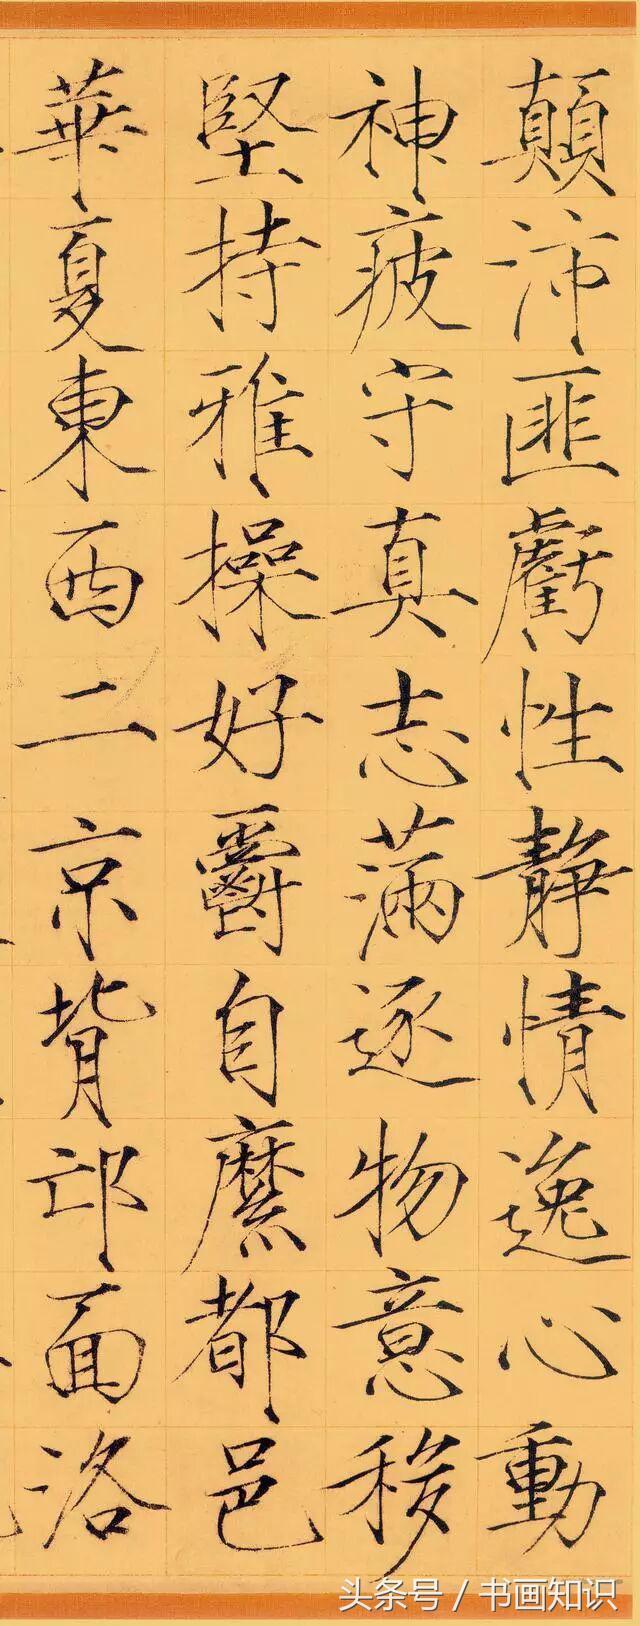 顛沛匪虧性靜情逸心動
神疲守真志滿逐物意移
堅持雅操好爵自縻都邑
華夏東西二京背邙面洛
头条号 / 书画知识